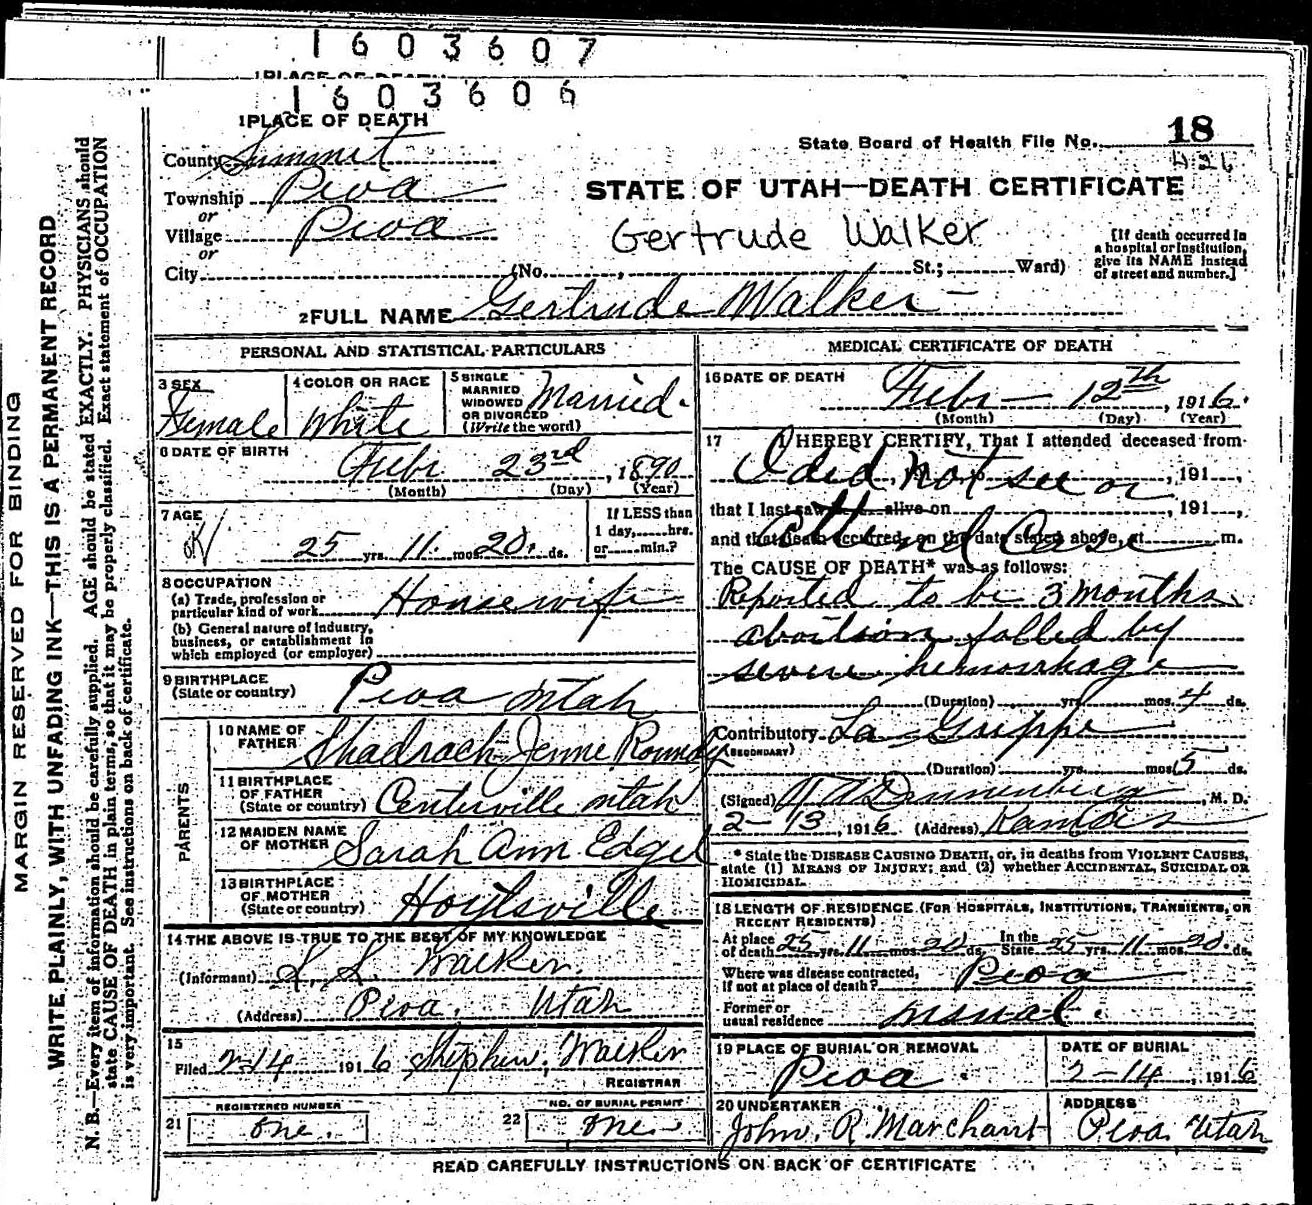 1603607
1PLACE OF DEATH
1603606
1PLACE OF DEATH
County Summit
Township Peoa
or
Village Peoa
or
City (No. , St.; Ward)
State Board of Health File No. 18
STATE OF UTAH—DEATH CERTIFICATE
Gertrude Walker
[If death occurred in
a hospital or institution,
give its NAME instead
of street and number.]
2FULL NAME Gertrude Walker
PERSONAL AND STATISTICAL PARTICULARS
3 SEX
Female
4 COLOR OR RACE
White
5 SINGLE
MARRIED
WIDOWED
OR DIVORCED
(Write the word)
Married.
6 DATE OF BIRTH
Febr 23rd, 1890
(Month) (Day) (Year)
7 AGE
25 yrs. 11 mos. 20 ds.
If LESS than
1 day, hrs.
or min.?
8 OCCUPATION
(a) Trade, profession or
particular kind of work Housewife
(b) General nature of industry,
business, or establishment in
which employed (or employer)
9 BIRTHPLACE
(State or country) Peoa Utah
PARENTS
10 NAME OF
FATHER Shadrach Jenne Romney
11 BIRTHPLACE
OF FATHER
(State or country) Centerville Utah
12 MAIDEN NAME
OF MOTHER Sarah Ann Edgel
13 BIRTHPLACE
OF MOTHER
(State or country) Hoytsville
14 THE ABOVE IS TRUE TO THE BEST OF MY KNOWLEDGE
(Informant) Walker
(Address) Peoa. Utah
15
Filed 2-14 1916 Stephen Walker
REGISTRAR
REGISTERED NUMBER
21 One.
NO. OF BURIAL PERMIT
22 One
MEDICAL CERTIFICATE OF DEATH
16 DATE OF DEATH
Febr — 12th, 1916.
(Month) (Day) (Year)
17 I HEREBY CERTIFY, That I attended deceased from
I did not see or , 191 ,
that I last saw alive on , 191 ,
attend Case
and that death occurred, on the date stated above, at m.
The CAUSE OF DEATH* was as follows:
Reported to be 3 months
abortion folled by
severe hemorrhage
(Duration) yrs. mos. 4 ds.
Contributory La Grippe
(SECONDARY)
(Duration) yrs. mos. 5 ds.
(Signed) Dannenberg, M. D.
2-13, 1916 (Address) Kamas
* State the DISEASE CAUSING DEATH, or, in deaths from VIOLENT CAUSES,
state (1) MEANS OF INJURY; and (2) whether ACCIDENTAL, SUICIDAL OR
HOMICIDAL.
18 LENGTH OF RESIDENCE (FOR HOSPITALS, INSTITUTIONS, TRANSIENTS, OR
RECENT RESIDENTS)
At place of death 25 yrs. 11 mos. 20 ds. In the State 25 yrs. 11 mos. 20. ds.
Where was disease contracted,
if not at place of death? Peoa
Former or
usual residence usual.
19 PLACE OF BURIAL OR REMOVAL
Peoa.
DATE OF BURIAL
2-14, 1916
20 UNDERTAKER
John. R. Marchant
ADDRESS
Peoa. Utah
READ CAREFULLY INSTRUCTIONS ON BACK OF CERTIFICATE
MARGIN RESERVED FOR BINDING
WRITE PLAINLY, WITH UNFADING INK—THIS IS A PERMANENT RECORD
N. B.—Every item of information should be carefully supplied. AGE should be stated EXACTLY. PHYSICIANS should
state CAUSE OF DEATH in plain terms, so that it may be properly classified. Exact statement of OCCUPATION
is very important. See instructions on back of certificate.